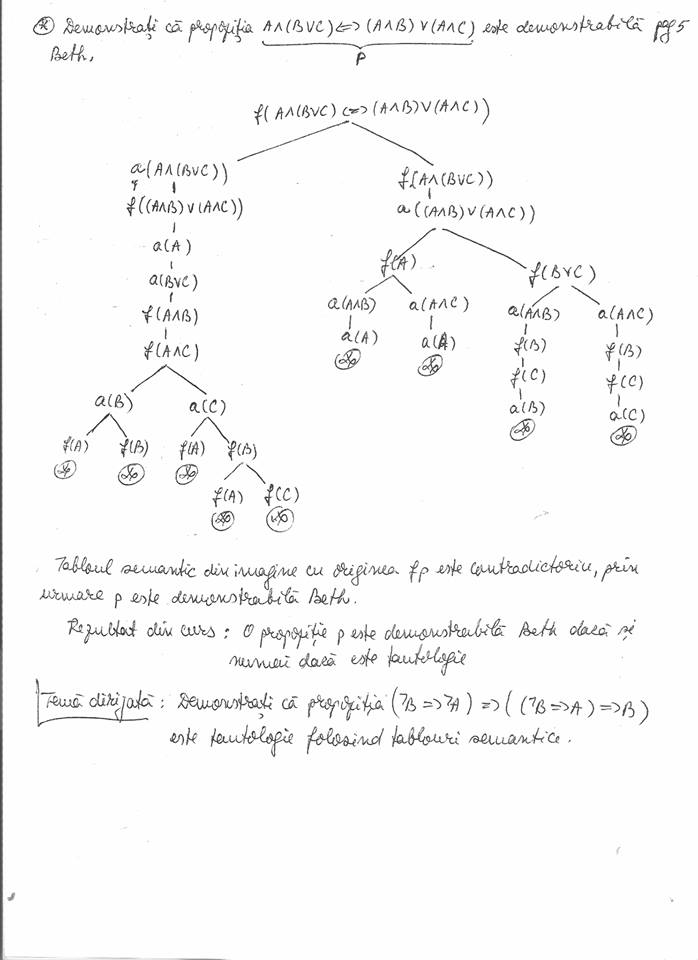 (*) Demonstrați că propoziția A∧(B∨C)<=>(A∧B)∨(A∧C) este demonstrabilă pg 5
p
Beth.
f(A∧(B∨C)<=>(A∧B)∨(A∧C))
a(A∧(B∨C)) f(A∧(B∨C))
f((A∧B)∨(A∧C)) a((A∧B)∨(A∧C))
a(A) f(A) f(B∨C)
a(B∨C) a(A∧B) a(A∧C) a(A∧B) a(A∧C)
f(A∧B) a(A) a(A) f(B) f(B)
f(A∧C) f(C) f(C)
a(B) a(C) a(B) a(C)
f(A) f(B) f(A) f(B)
f(A) f(C)
Tabloul semantic din imagine cu originea fp este contradictoriu, prin
urmare p este demonstrabilă Beth.
Rezultat din curs: O propoziție p este demonstrabilă Beth dacă și
numai dacă este tautologie
Temă dirijată: Demonstrați că propoziția (¬B=>¬A)=>((¬B=>A)=>B)
este tautologie folosind tablouri semantice.